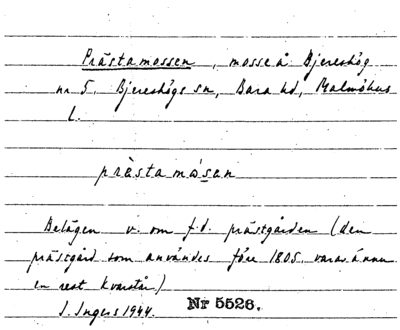 Prästamossen, mosse å Bjereshög
nr 5, Bjereshögs sn, Bara hd, Malmöhus
l.
prästamåsen
Belägen v. om f.d. prästgården (den
prästgård som användes före 1805, varav ännu
en rest kvarstår)
I. Ingers 1944. Nr 5526.